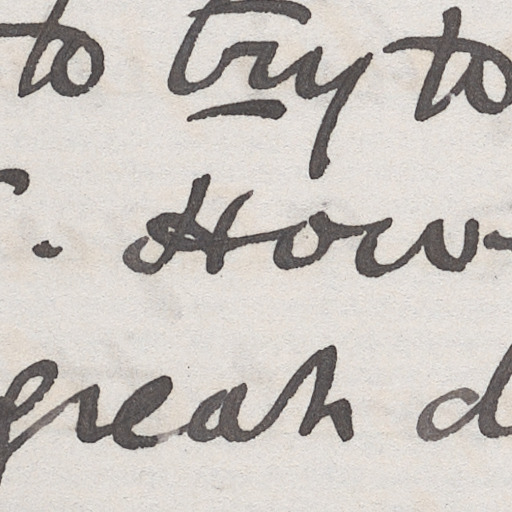 to try to
. How
great d